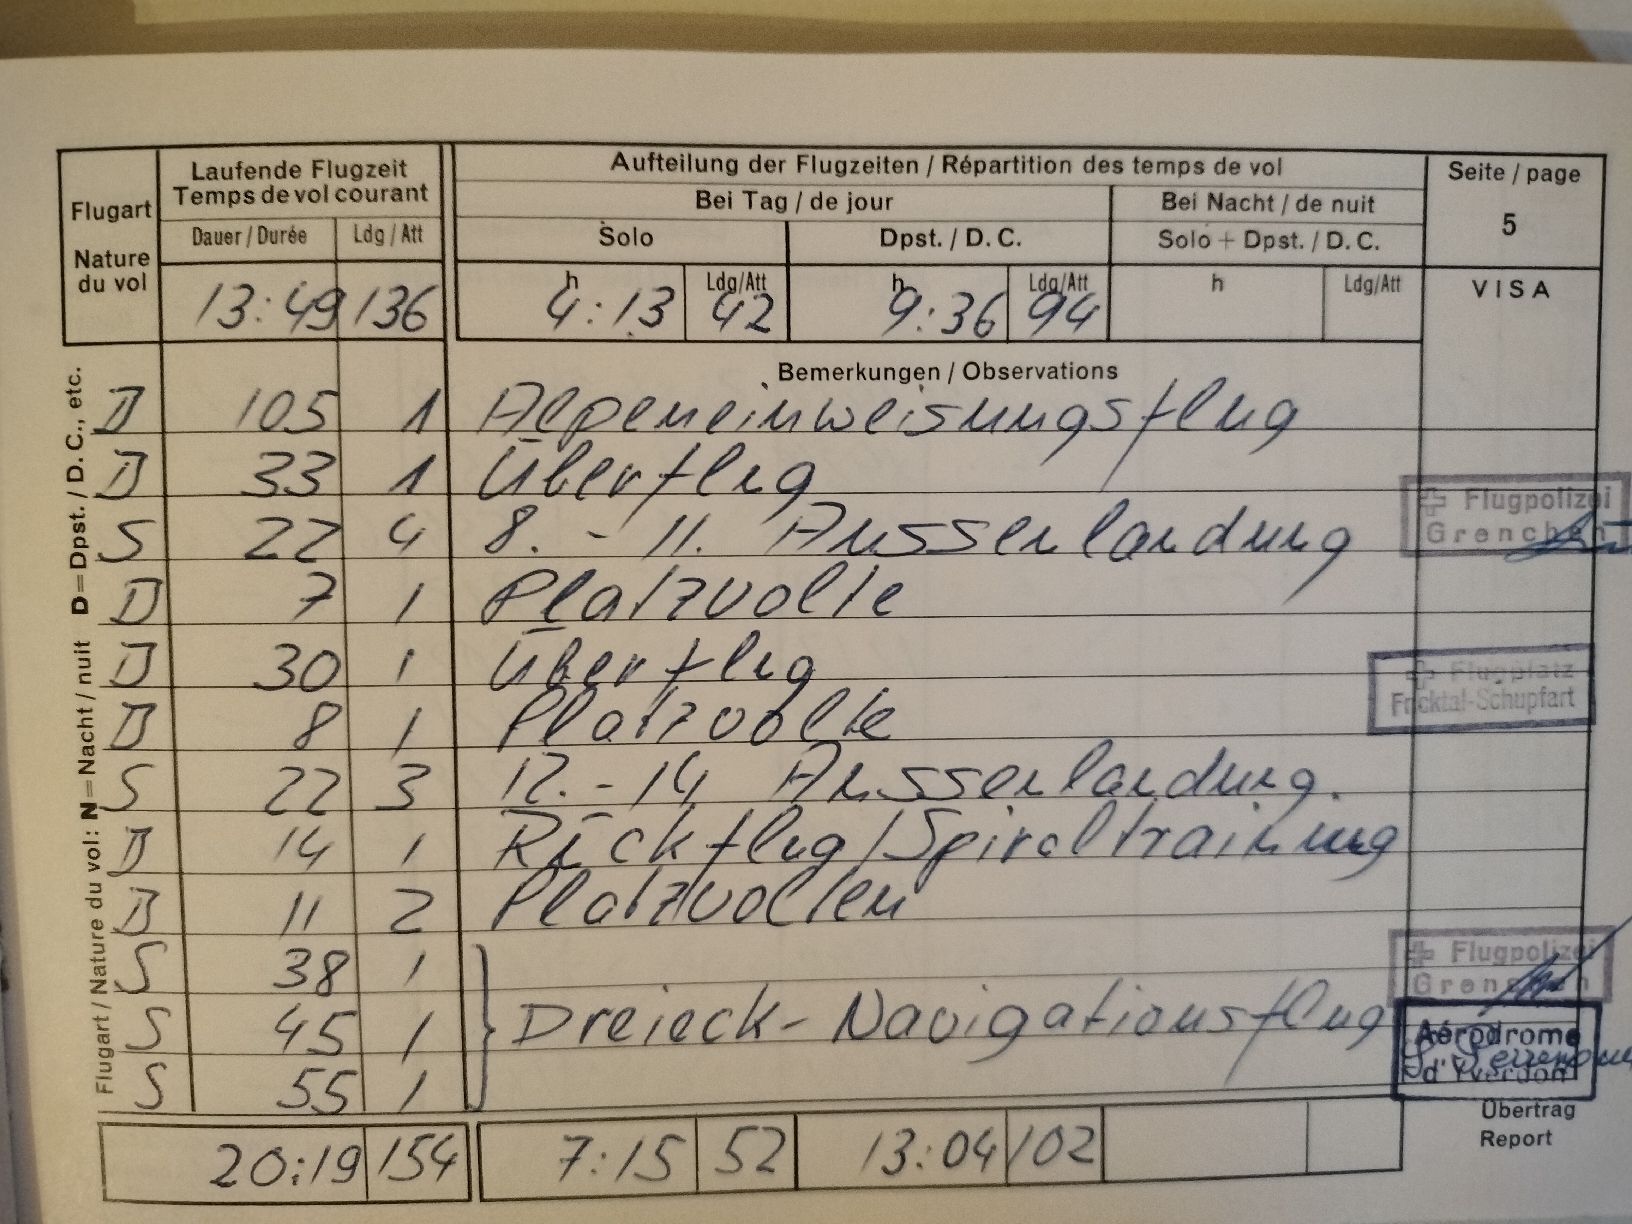 Flugart
Nature
du vol
Laufende Flugzeit
Temps de vol courant
Dauer / Durée Ldg / Att
13:49 136
Aufteilung der Flugzeiten / Répartition des temps de vol
Bei Tag / de jour Bei Nacht / de nuit
Solo Dpst. / D. C. Solo + Dpst. / D. C.
h Ldg/Att h Ldg/Att h Ldg/Att
4:13 42 9:36 94
Seite / page
5
VISA
Bemerkungen / Observations
Flugart / Nature du vol: N = Nacht / nuit D = Dpst. / D. C., etc.
D 105 1 Alpeneinweisungsflug
D 33 1 Überflug
S 22 4 8. - 11. Aussenlandung
D 7 1 Platzvolte
D 30 1 Überflug
D 8 1 Platzvolte
S 22 3 12. - 14 Aussenlandung.
D 14 1 Rückflug / Spiraltraining
D 11 2 Platzvolten
S 38 1
S 45 1 Dreieck - Navigationsflug
S 55 1
Flugpolizei
Grenchen
Flugplatz
Fricktal-Schupfart
Flugpolizei
Grenchen
Aérodrome
d'Yverdon
Übertrag
Report
20:19 154 7:15 52 13:04 102